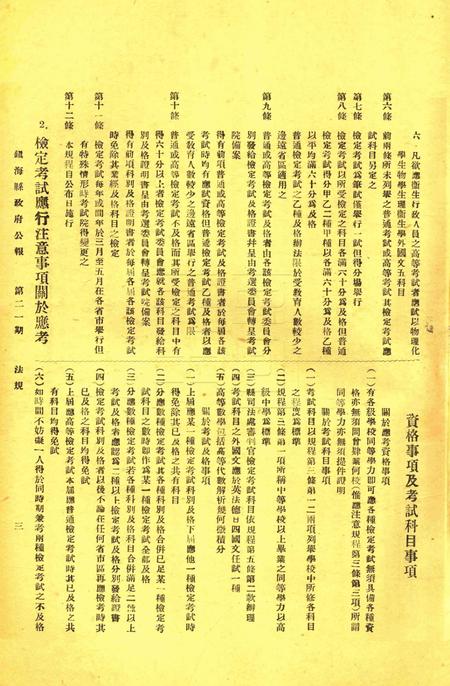 六 凡欲應衞生行政人員之高等考試者應試以物理化
學生物學生理衞生學外國文五科目
第六條 前兩條所未列舉之普通考試或高等考試其檢定考試應
試科目另定之
第七條 檢定考試爲筆試僅舉行一試但得分場舉行
第八條 檢定考試以所受檢定之科目各滿六十分爲及格但普通
檢定考試得分甲乙二種甲種以各滿六十分爲及格乙種
以平均滿六十分爲及格
普通檢定考試之乙種及格辦法限於受教育人數較少之
邊遠省區適用之
第九條 普通或高等檢定考試及格者由各該檢定考試委員會分
別發給檢定考試及格證書并呈由考選委員會轉呈考試
院備案
得有前項普通或高等檢定考試及格證書者於每屆各該
考試時均有應試資格但普通檢定考試乙種及格者以應
受教育人數較少之邊遠省區舉行之普通考試爲限
第十條 普通或高等檢定考試不及格而其所受檢定之科目中有
得六十分以上者檢定考試委員會應就各該科目發給科
別及格證明書呈由考選委員會轉呈考試院備案
得有前項科別及格證明書者於每屆各該檢定考試
時免除其業經及格科目之檢定
第十一條 檢定考試每年或間年於三月至五月在各省市舉行但
有特殊情形時考試院得變更之
第十二條 本規程自公布日施行
2. 檢定考試應行注意事項關於應考
資格事項及考試科目事項
關於應考資格事項
(一)有各級學校同等學力即可應各種檢定考試無須具備各種資
格亦無須問曾肄業何校(惟應注意規程第三條第三項)所謂
同等學力亦無須提件證明
關於考試科目事項
(一)考試科目以規程第三條第一二兩項列舉學校中所修各科目
之程度爲標準
(二)規程第三條第一項所稱中等學校以上畢業之同等學力以高
級中學爲標準
(三)縣司法處審判官檢定考試科目依規程第五條第二款辦理
(四)考試科目之外國文應於英法德日四國文任試一種
(五)高等數學包括高等代數解析幾何微積分
關於考試及格事項
(一)上屆應某一種檢定考試科別及格下屆應他一種檢定考試時
得免除其已及格之共有科目
(二)分應數種檢定考試其各種科別及格合併已足某一種檢定考
試科目之數時即作爲某一種檢定考試全部及格
(三)分應數種檢定考試若各種科別及格科目合併滿足二種以上
考試及格者應認爲二種以上檢定考試及格分別發給證書
(四)檢定考試科別及格者以後不論在任何省市區再應檢考時其
已及格之科目均得免試
(五)上屆應高等檢定考試本屆應普通檢定考試時其已及格之共
有科目均得免試
(六)如時間不妨礙一人得於同時期兼考兩種檢定考試之不及格
鎮海縣政府公報 第二一期 法規 三